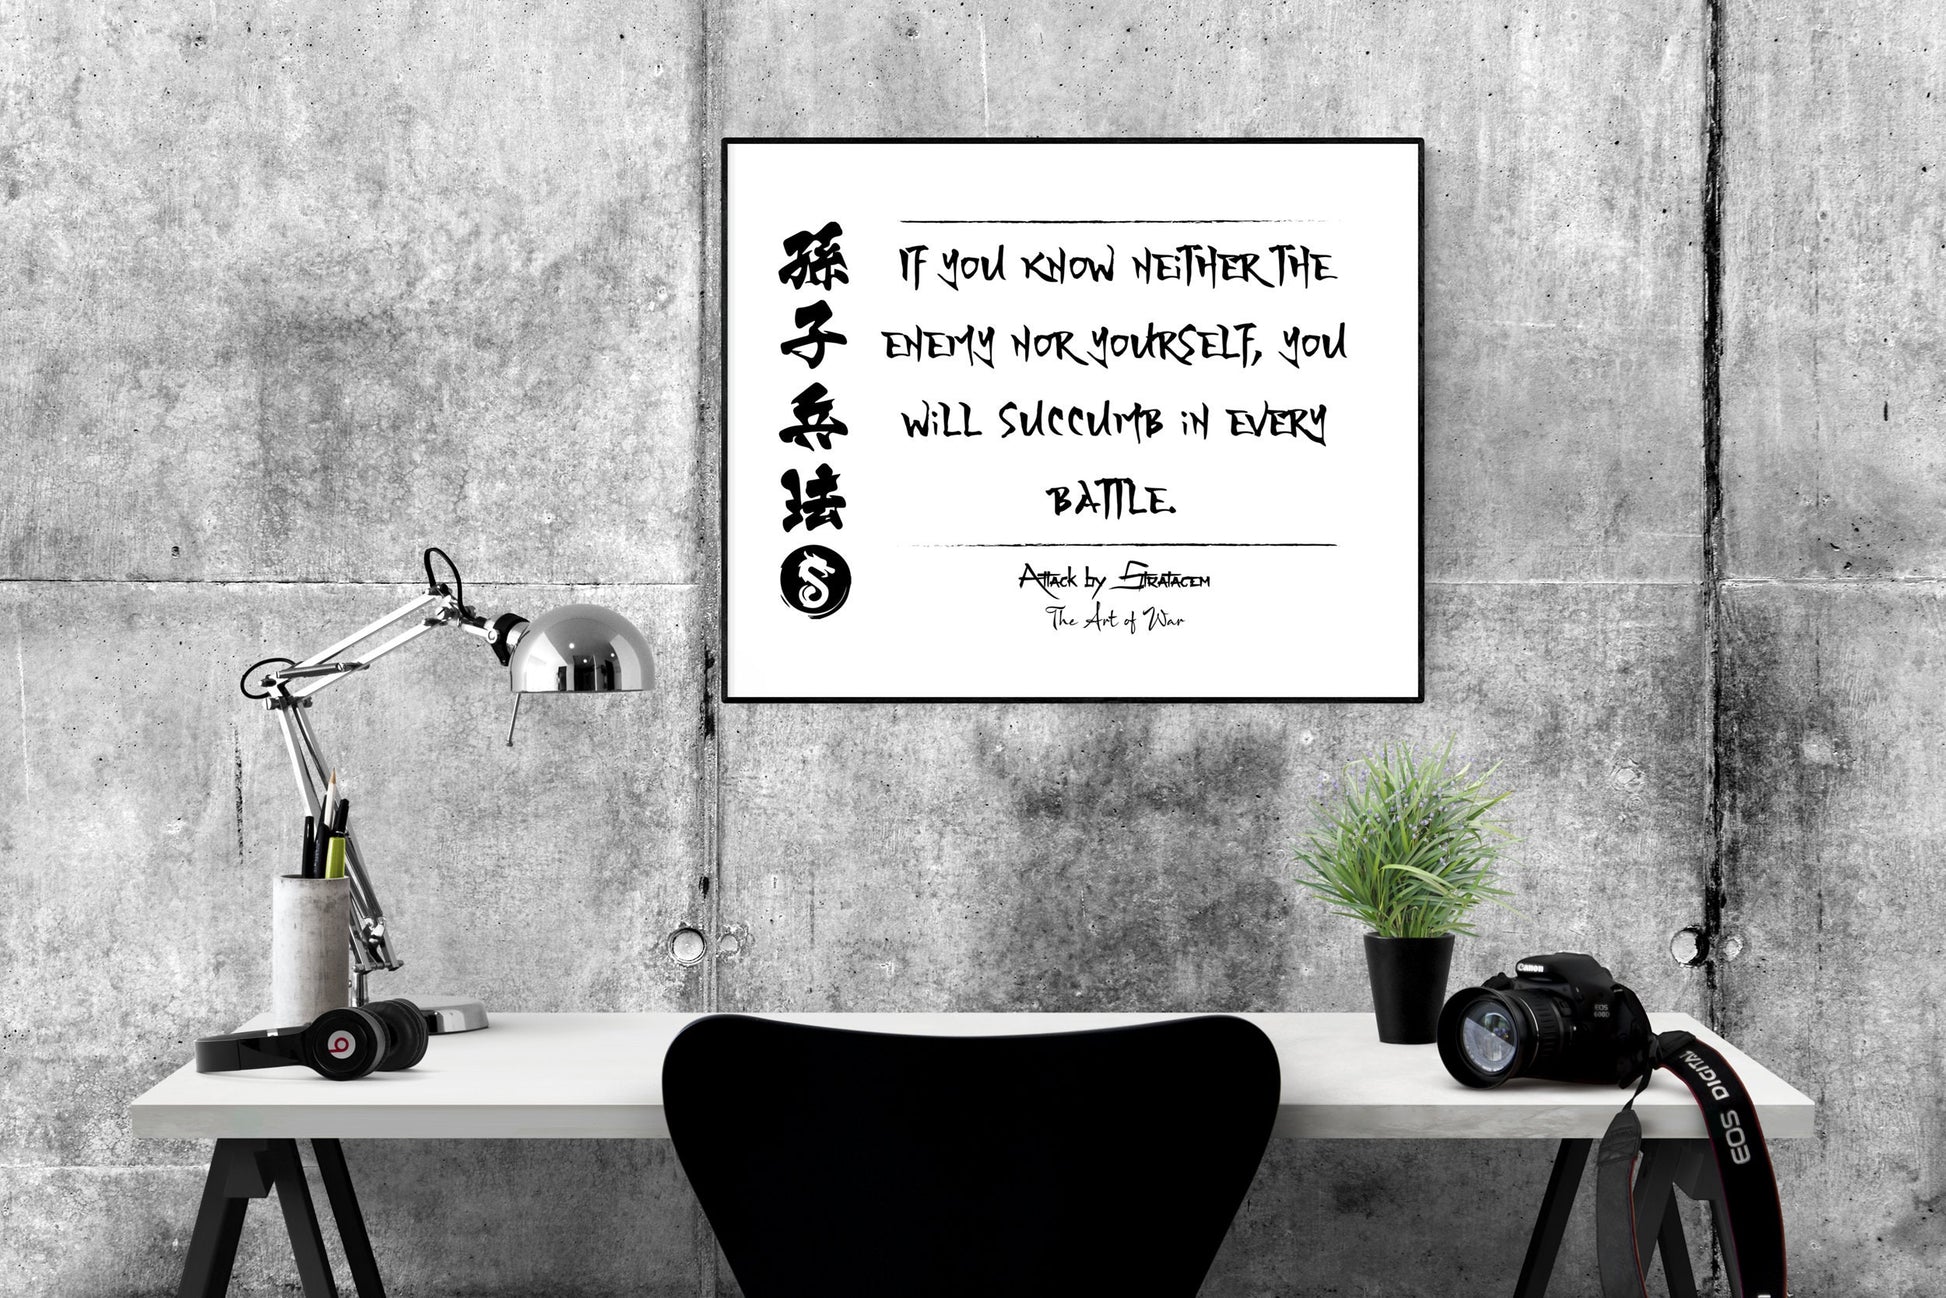 孫子兵法
IF YOU KNOW NEITHER THE
ENEMY NOR YOURSELF, YOU
WILL SUCCUMB IN EVERY
BATTLE.
Attack by Stratagem
The Art of War
Canon
EOS
600D
EOS DIGITAL
b